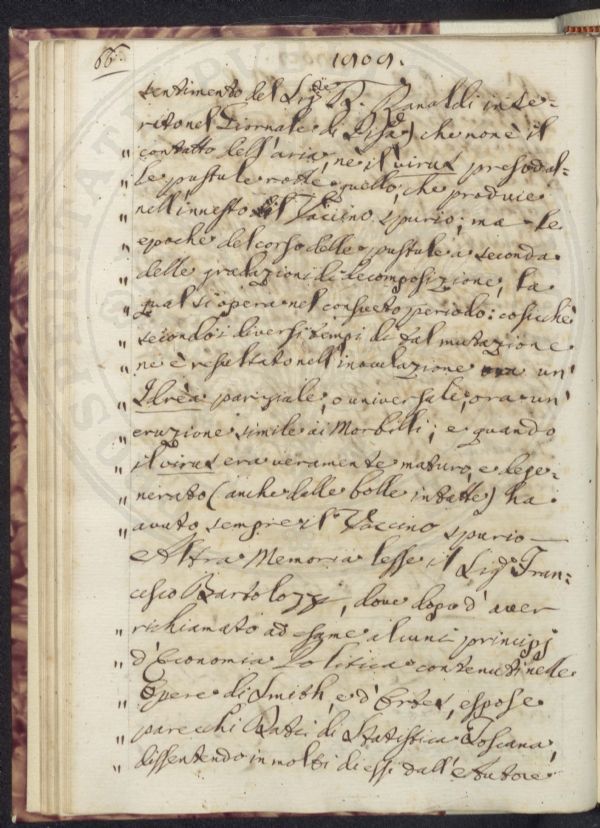 66.
1809.
sentimento del Sig.re R. Ranaldi inse-
rito nel Giornale di Pisa) che non è il
" contatto dell'aria, ne il virus preso dal-
" le pustule rotte quello, che produce
" nell'innesto il Vaccino spurio; ma le
" epoche del corso delle pustule a seconda
" delle gradazioni di decomposizione, la
" qual si opera nel consueto periodo: cosicchè
" secondo i diversi tempi di tal mutazione
" ne è resultato nell'inoculazione ora un'
" Idrèa parziale, o universale, ora un'
" eruzione simile ai Morbilli; e quando
" il virus era veramente maturo, e dege-
" nerato (anche dalle bolle intatte) ha
" avuto sempre il Vaccino spurio —
Altra Memoria lesse il Sig.r Fran-
cesco Bartolozzi, dove dopo d'aver
" richiamato ad esame alcuni principj
" d'Economia Politica contenuti nelle
" Opere di Smith, e d'Ortes, espose
" parecchi Ratei di Statistica Toscana,
" dissentendo in molti di essi dall'Autore